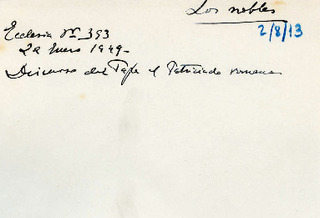 Los nobles
2/8/13
Ecclesia nº 393
22 Enero 1949.
Discurso del Papa al Patriciado romano